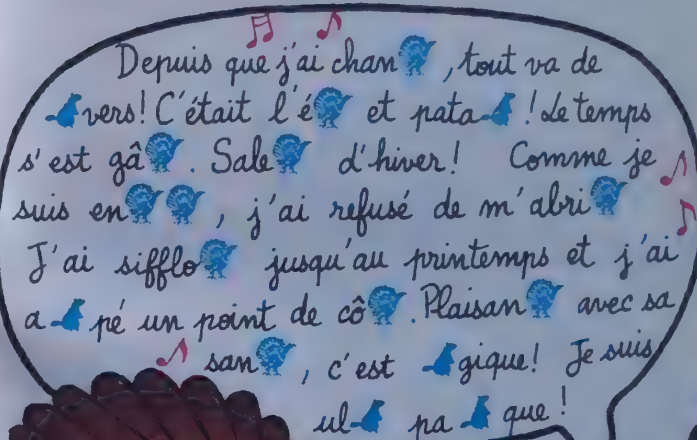 Depuis que j'ai chan , tout va de
vers! C'était l'é et pata ! Le temps
s'est gâ . Sale d'hiver! Comme je
suis en , j'ai refusé de m'abri
J'ai sifflo jusqu'au printemps et j'ai
a pé un point de cô . Plaisan avec sa
san , c'est gique! Je suis
ul pa que!